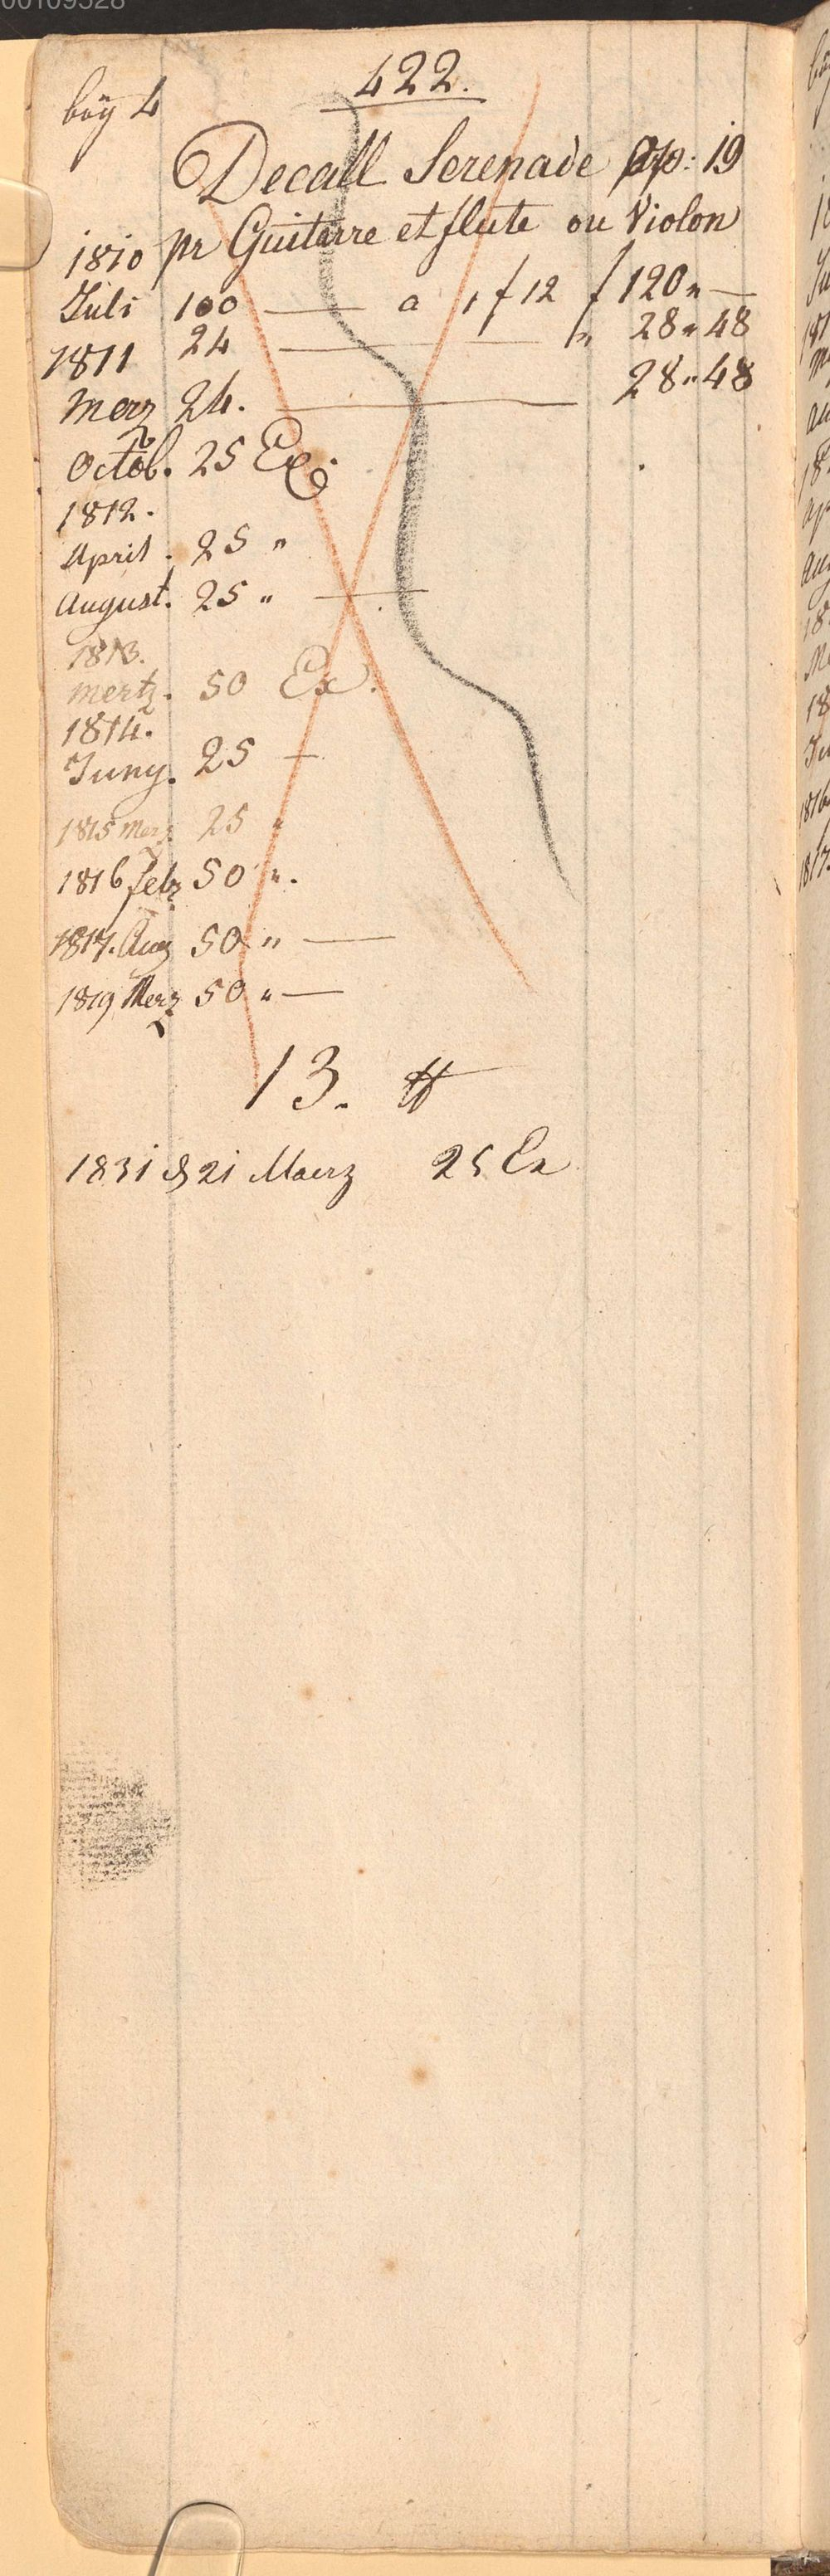 422.
boÿ 4
Decall Serenade op: 19
1810 pr Guitarre et flute ou Violon
Juli 100 — a 1 f 12 f 120 „ —
1811 24 — „ 28 „ 48
Merz 24. — 28 „ 48
Octob. 25 Ex.
1812.
April. 25 "
August. 25 " —
1813.
Mertz. 50 Ex.
1814.
Juny. 25 —
1815 Merz 25 "
1816 febr 50 ".
1817. Aug 50 " —
1819 Merz 50 " —
13. tt
1831 d 21 Maerz 25 Ex